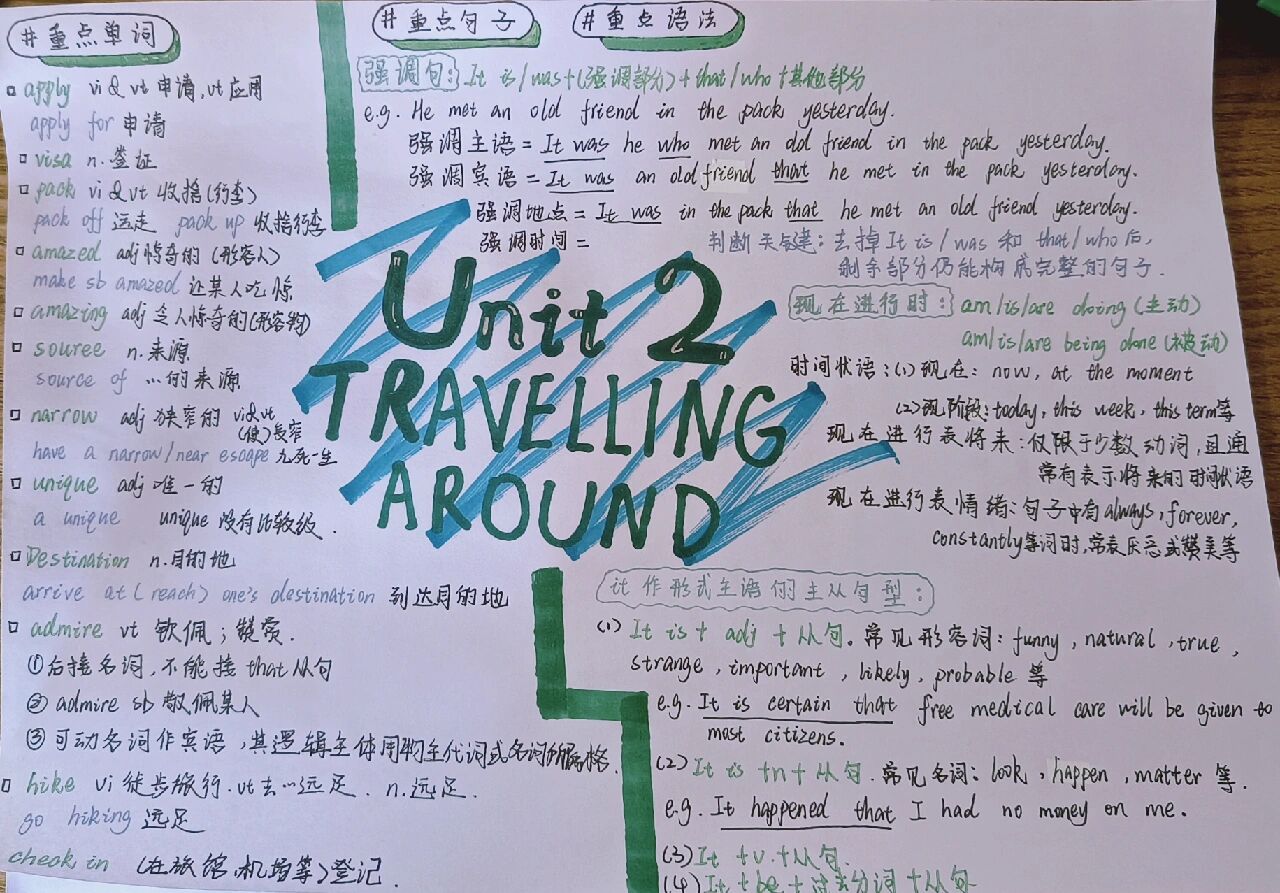 #重点单词
apply vi & vt 申请, vt 应用
apply for 申请
visa n. 签证
pack vi & vt 收拾(行李)
pack off 远走 pack up 收拾行李
amazed adj 惊奇的 (形容人)
make sb amazed 让某人吃惊
amazing adj 令人惊奇的(形容物)
souree n. 来源
source of …的来源
narrow adj 狭窄的 vi & vt
(使)变窄
have a narrow/near escape 九死一生
unique adj 唯一的
a unique unique 没有比较级.
Destination n. 目的地
arrive at (reach) one's destination 到达目的地
admire vt 钦佩; 赞赏.
①后接名词, 不能接that从句
② admire sb 敬佩某人
③ 可动名词作宾语, 其逻辑主体用物主代词或名词所属格.
hike vi 徒步旅行. vt 去…远足. n. 远足.
go hiking 远足
check in (在旅馆,机场等)登记.
#重点句子
#重点语法
强调句: It is/was+(强调部分)+that/who+其他部分
e.g. He met an old friend in the pack yesterday.
强调主语 = It was he who met an old friend in the pack yesterday.
强调宾语 = It was an old friend that he met in the pack yesterday.
强调地点 = It was in the pack that he met an old friend yesterday.
强调时间 =
判断关键: 去掉It is/was 和 that/who后,
剩余部分仍能构成完整的句子.
Unit 2
TRAVELLING
AROUND
现在进行时: am/is/are doing (主动)
am/is/are being done (被动)
时间状语: (1) 现在: now, at the moment
(2)现阶段: today, this week, this term等
现在进行表将来: 仅限于少数动词, 且通
常有表示将来的时间状语
现在进行表情绪: 句子中有always, forever,
constantly等词时, 常表厌恶或赞美等
it作形式主语的主从句型:
(1) It is + adj + 从句. 常见形容词: funny, natural, true,
strange, important, likely, probable 等
e.g. It is certain that free medical care will be given to
most citizens.
(2) It is +n+ 从句. 常见名词: look, happen, matter 等.
e.g. It happened that I had no money on me.
(3) It +v.+从句.
(4) It + be + 过去分词 +从句